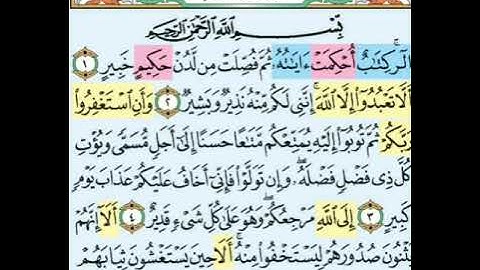 بِسْمِ اللَّهِ الرَّحْمَٰنِ الرَّحِيمِ
الٓر ۚ كِتَٰبٌ أُحْكِمَتْ ءَايَٰتُهُۥ ثُمَّ فُصِّلَتْ مِن لَّدُنْ حَكِيمٍ خَبِيرٍ ١
أَلَّا تَعْبُدُوٓا۟ إِلَّا ٱللَّهَ ۚ إِنَّنِى لَكُم مِّنْهُ نَذِيرٌ وَبَشِيرٌ ٢ وَأَنِ ٱسْتَغْفِرُوا۟
رَبَّكُمْ ثُمَّ تُوبُوٓا۟ إِلَيْهِ يُمَتِّعْكُم مَّتَٰعًا حَسَنًا إِلَىٰٓ أَجَلٍ مُّسَمًّى وَيُؤْتِ
كُلَّ ذِى فَضْلٍ فَضْلَهُۥ ۖ وَإِن تَوَلَّوْا۟ فَإِنِّىٓ أَخَافُ عَلَيْكُمْ عَذَابَ يَوْمٍ
كَبِيرٍ ٣ إِلَى ٱللَّهِ مَرْجِعُكُمْ ۖ وَهُوَ عَلَىٰ كُلِّ شَىْءٍ قَدِيرٌ ٤ أَلَآ إِنَّهُمْ
يَثْنُونَ صُدُورَهُمْ لِيَسْتَخْفُوا۟ مِنْهُ ۚ أَلَا حِينَ يَسْتَغْشُونَ ثِيَابَهُمْ